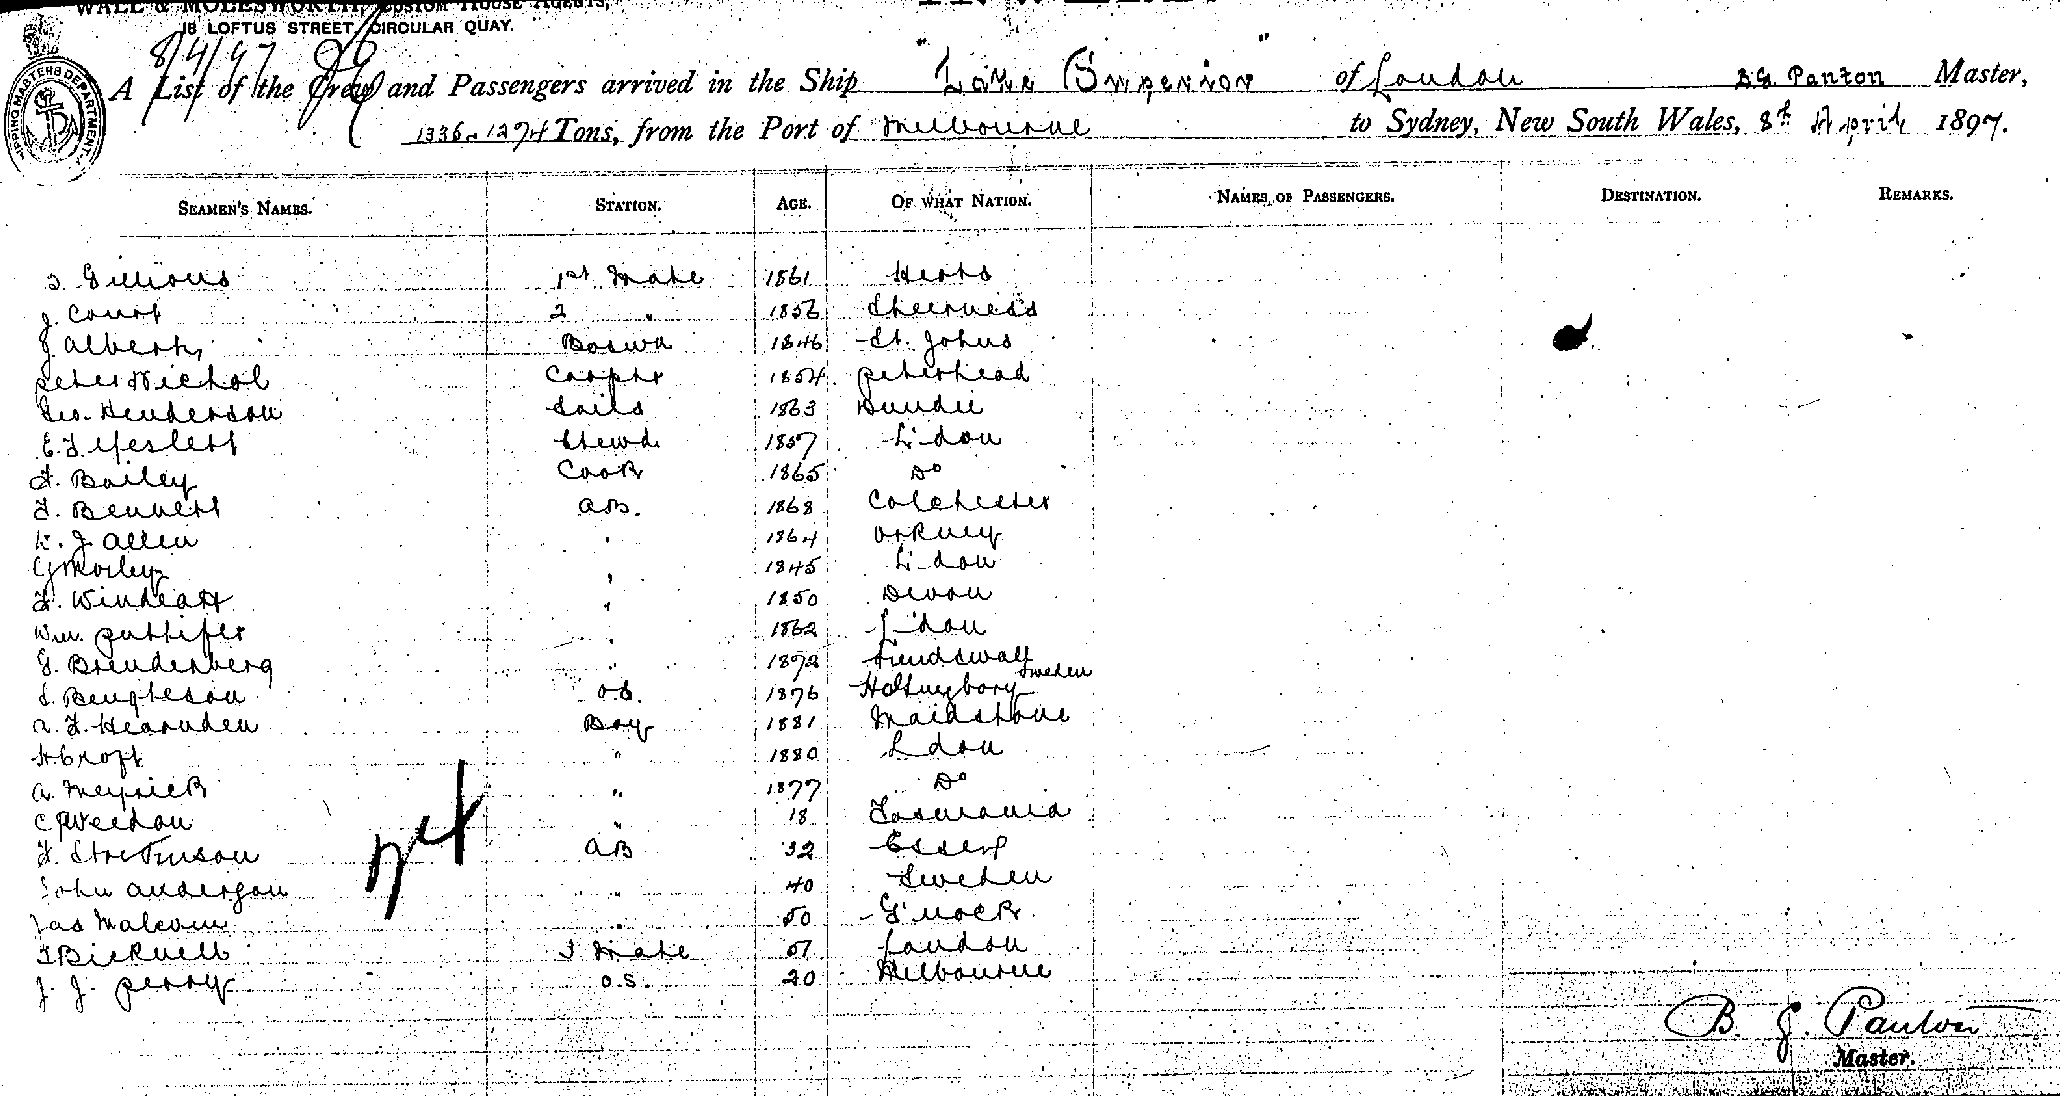 WALL & MOLESWORTH, CUSTOM HOUSE AGENTS,
18 LOFTUS STREET, CIRCULAR QUAY.
8/4/97
SHIPPING MASTERS DEPARTMENT
A List of the Crew and Passengers arrived in the Ship "Lake Superior" of London B.G. Panton Master,
1336-1274 Tons, from the Port of Melbourne to Sydney, New South Wales, 8th April 1897.
SEAMEN'S NAMES. STATION. AGE. OF WHAT NATION. NAMES OF PASSENGERS. DESTINATION. REMARKS.
1st Mate 1861 Herts
J. Court 2 " 1856 Sheerness
J. Albert Boswn 1846 St. Johns
Peter Nichol Carptr 1854 Peterhead
Geo. Henderson Sails 1863 Dundee
Stewd. 1857 L'don
F. Bailey Cook 1865 Do
F. Bennett A.B. 1868 Colchester
J. Allen " 1864 Orkney
Morley " 1845 L'don
F. Windeatt " 1850 Devon
Wm. Puttifer " 1862 L'don
G. Brenderberg " 1872 Sundswall Sweden
S. Bengteson O.S. 1876
A. F. Hearnden Boy 1881 Maidstone
H Croft " 1880 L'don
A. Meyrick " 1877 Do
C Weedon " 18 Tasmania
AB 32 Essex
John Anderson " 40 Sweden
Jas Malcom " 50 G'nock
F Bicknell 3 Mate 51 London
J. J. Perry O.S. 20 Melbourne
B. G. Panton
Master.